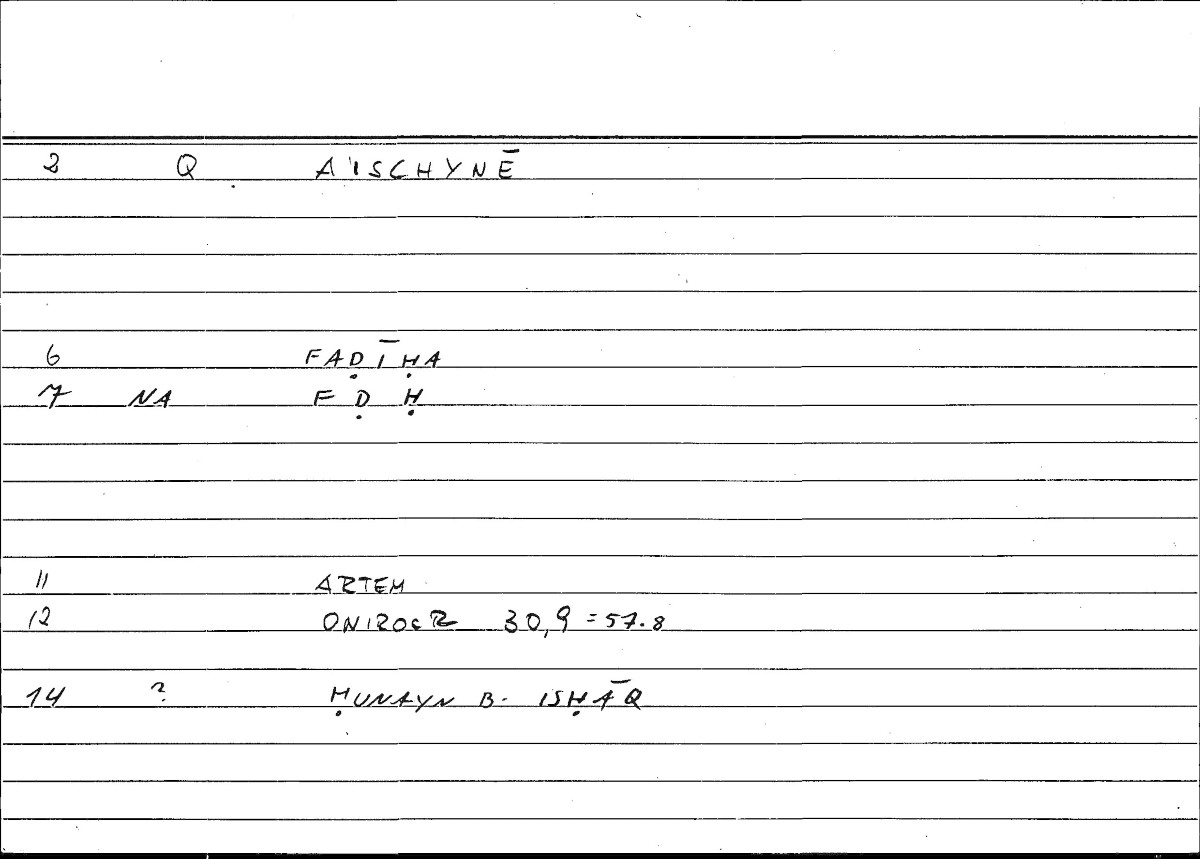 2 Q A'ISCHYNĒ
6 FAḌĪḤA
7 NA F Ḍ Ḥ
11 ARTEM
12 ONIROCR 30,9 = 57.8
14 ? ḤUNAYN B. ISḤĀQ